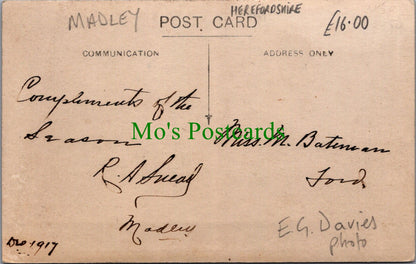 MADLEY
HEREFORDSHIRE
£16.00
POST CARD
COMMUNICATION
ADDRESS ONLY
Compliments of the
Season
R. A Snead
Madley
Dec 1917
Mo's Postcards
Miss. M. Bateman
Ford
E.G. Davies
photo